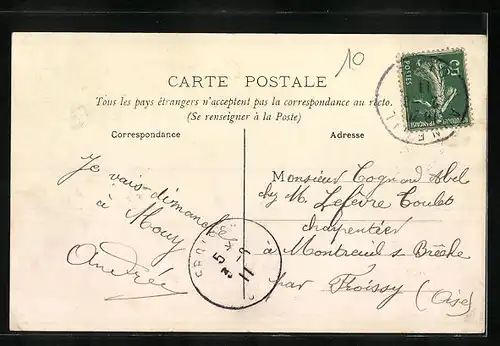 10
CARTE POSTALE
Tous les pays étrangers n'acceptent pas la correspondance au recto.
(Se renseigner à la Poste)
Correspondance
Adresse
5c
POSTES
Je vais dimanche
à Mouy
Andrée
Monsieur Cognard Abel
chez M. Lefèvre Toulet
charpentier
à Montreuil s Brêche
par Froissy (Oise)
5
11